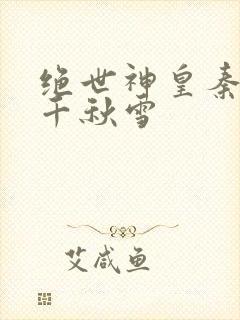 绝世神皇秦
千秋雪
艾咸鱼